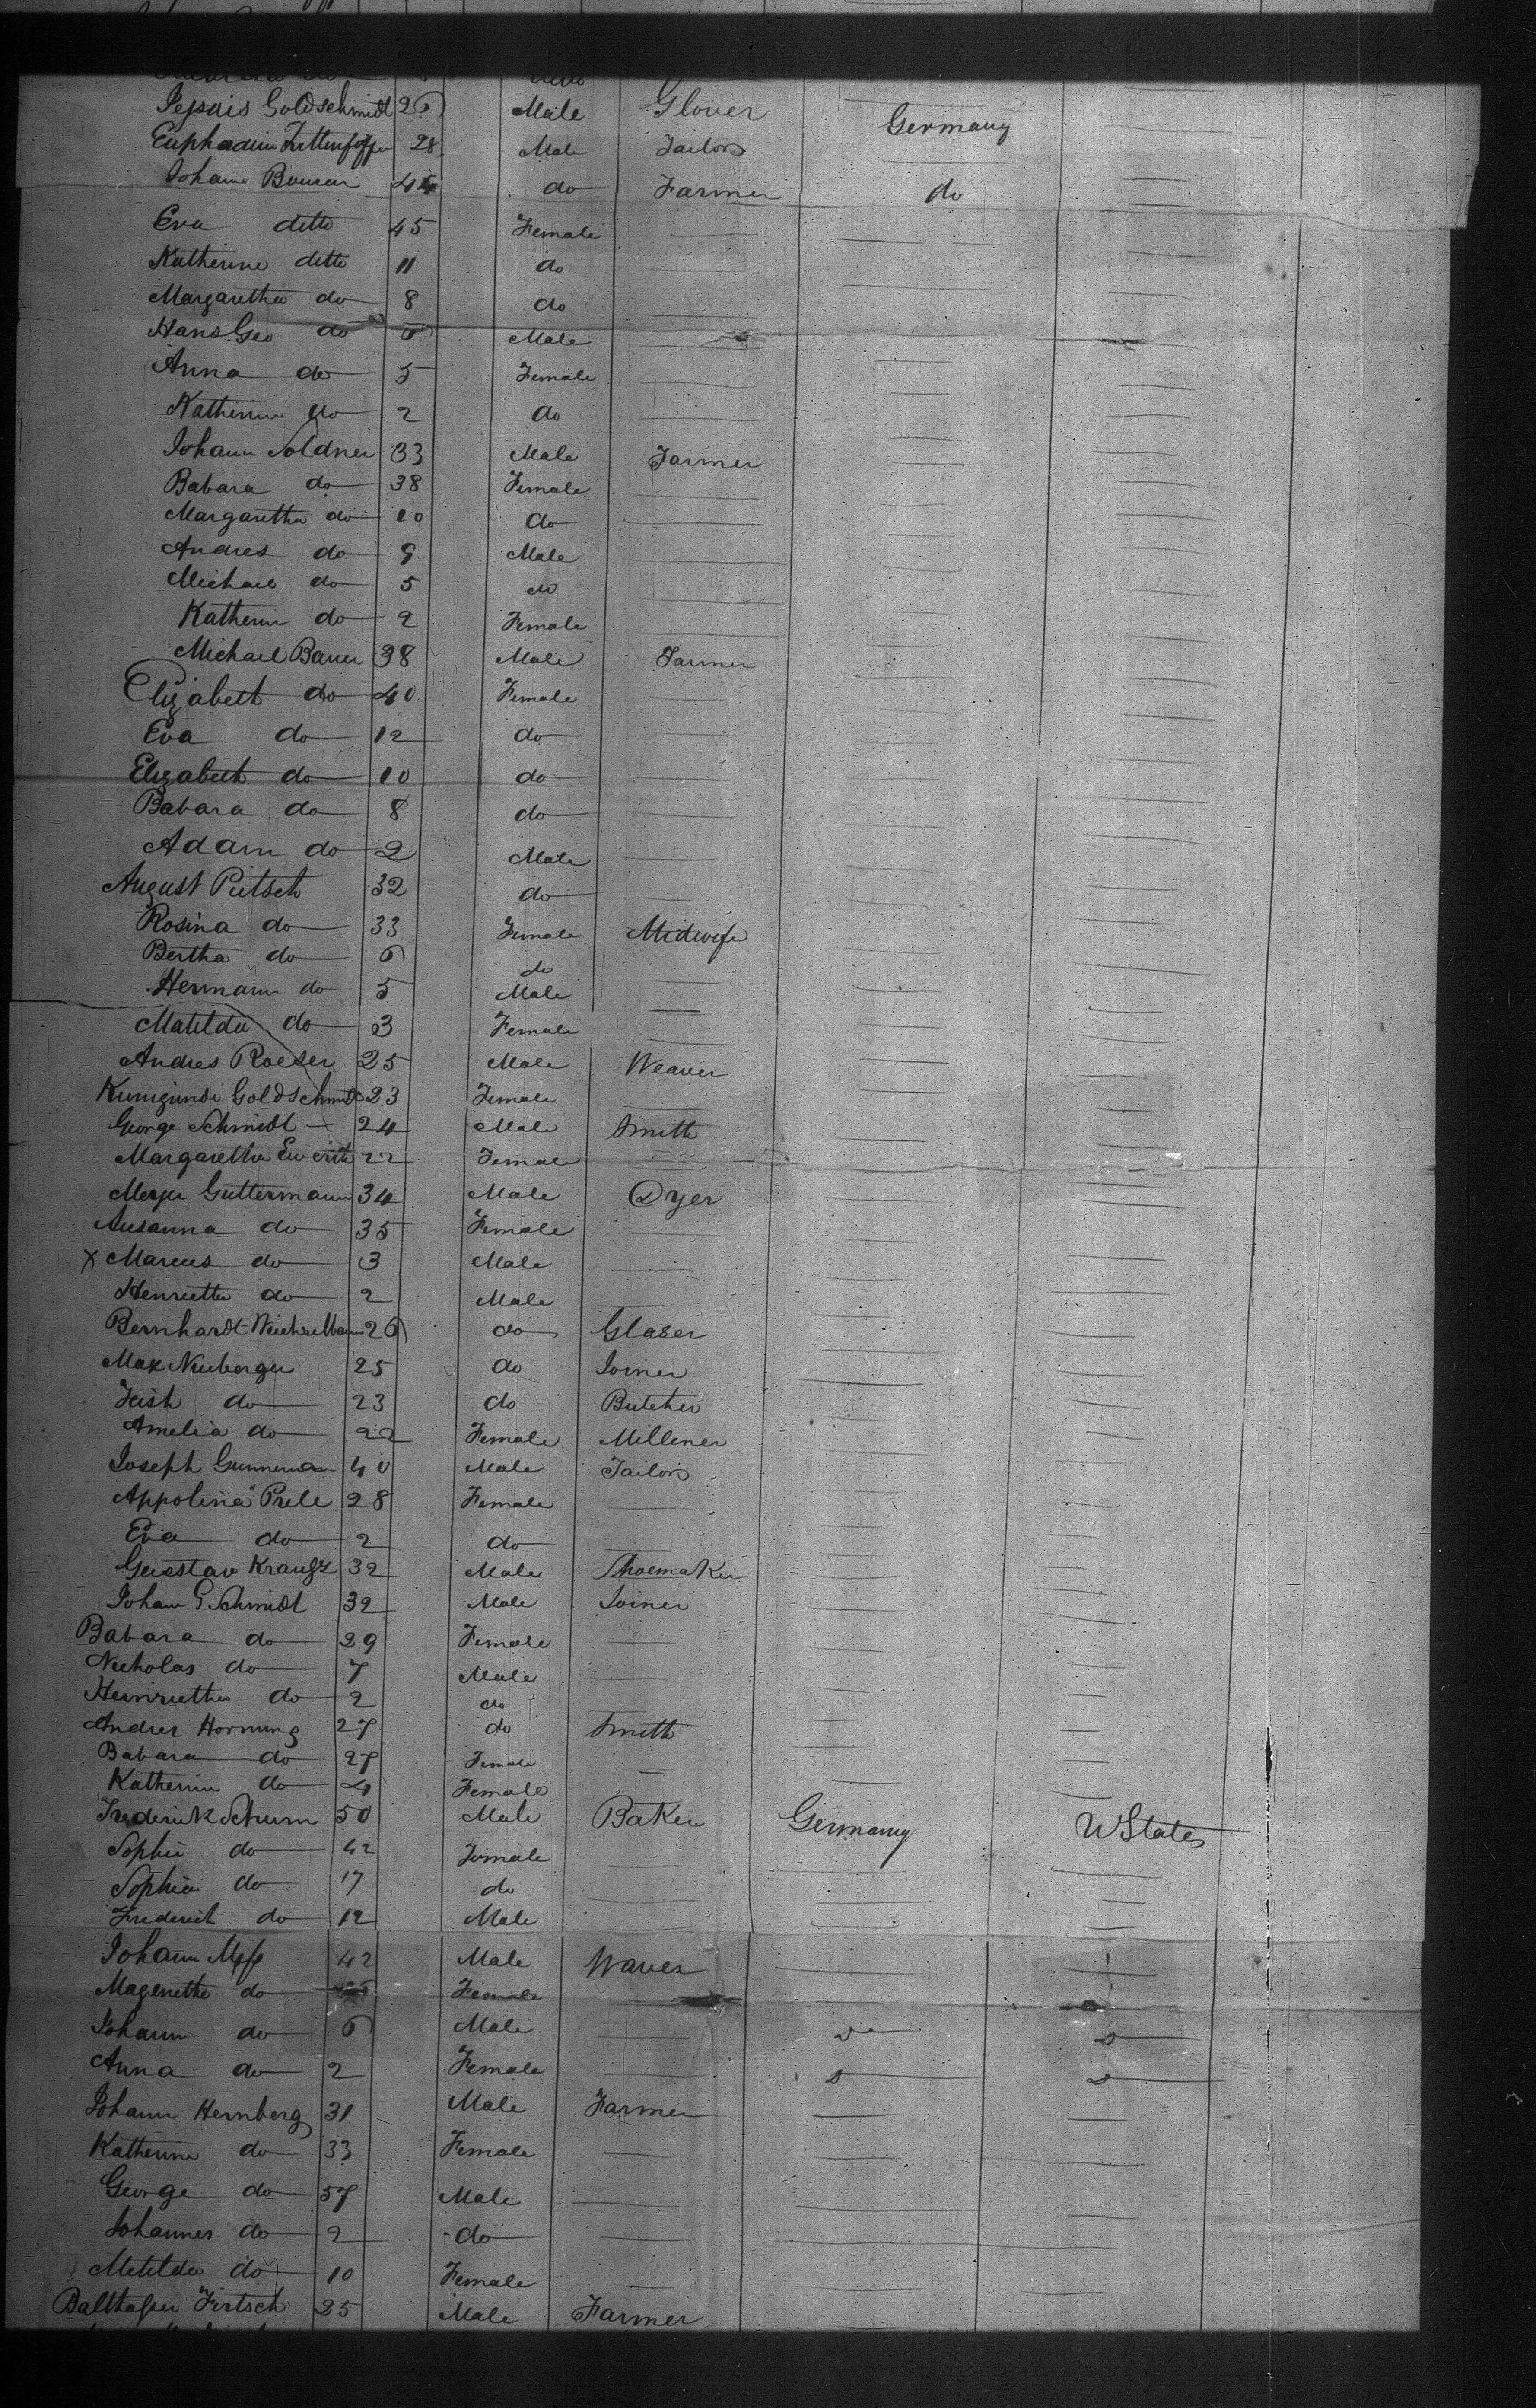 Goldschmidt 26 Male Glover Germany
28 Male Tailor
Johann 45 do Farmer do
Eva ditto 45 Female
Katherine ditto 11 do
Margaretha do 8 do
Hans Geo do 6 Male
Anna do 5 Female
Katherine do 2 do
Johann Soldner 33 Male Farmer
Babara do 38 Female
Margaretha do 10 do
Andres do 9 Male
Michael do 5 do
Katherin do 2 Female
Michael Bauer 38 Male Farmer
Elizabeth do 40 Female
Eva do 12 do
Elizabeth do 10 do
Babara do 8 do
Adam do 2 Male
August Pietsch 32 do
Rosina do 33 Female Midwife
Bertha do 6 do
Hermann do 5 Male
Matilda do 3 Female
Andres Roeser 25 Male Weaver
Kunigunde Goldschmidt 23 Female
George Schmidt 24 Male Smith
Margaretha 22 Female
Guttermann 34 Male Dyer
Susanna do 35 Female
x Marcus do 3 Male
Henrietta do 2 Male
Bernhardt 26 do Glaser
Max Neuberger 25 do Joiner
do 23 do Butcher
Amelia do 22 Female Millener
Joseph 40 Male Tailor
Appolina Prele 28 Female
Eva do 2 do
Gustav 32 Male Shoemaker
Johann G Schmidt 32 Male Joiner
Babara do 29 Female
Nicholas do 7 Male
Heinrietha do 2 do
Andres Hornung 27 do Smith
Babara do 27 Female
Katherin do 4 Female
Frederick Schum 50 Male Baker Germany UStates
Sophie do 42 Female
Sophia do 17 do
Frederick do 12 Male
Johann 42 Male Waver
do Female
Johann do 6 Male
Anna do 2 Female
Johann Hernberg 31 Male Farmer
Katherine do 33 Female
George do 57 Male
Johannes do 2 do
Metilda do 10 Female
Fertsch 25 Male Farmer